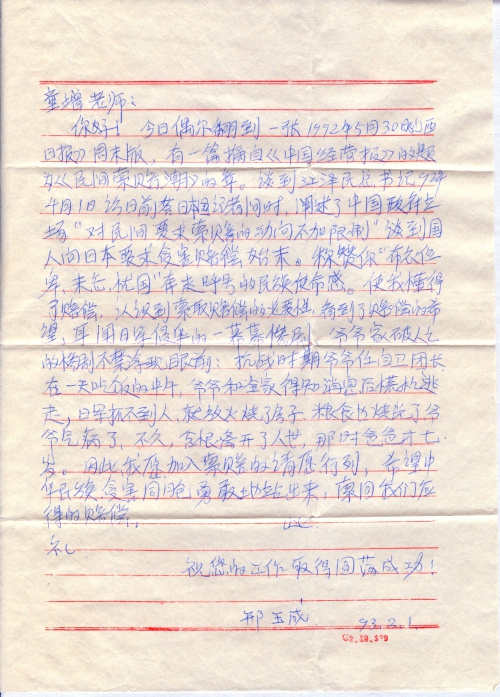 童增老师：
你好！今日偶尔翻到一张1992年5月30日《山西
日报》周末版，有一篇摘自《中国经营报》的题
为《民间索赔潮》的文章。谈到江泽民总书记92年
4月1日访日前答日本国记者问时，阐述了中国政府立
场“对民间要求索赔的动向不加限制”谈到国
人向日本要求受害赔偿始末。称赞你“布衣位
卑，未忘忧国”奔走呼号的民族使命感。使我懂得
了赔偿，认识到索取赔偿的必要性，看到了赔偿的希
望，耳闻日军侵华的一幕幕惨剧，爷爷家破人亡
的惨剧不禁浮现眼前：抗战时期爷爷任自卫团长
在一天吃饭的中午，爷爷和全家得知消息后慌忙逃
走，日军抓不到人，就放火烧了房子，粮食也烧完了爷
爷气病了，不久，含恨离开了人世，那时爸爸才七
岁。因此我愿加入索赔的请愿行列，希望中
华民族受害同胞勇敢地站出来，索回我们应
得的赔偿，此
礼
祝您的工作取得圆满成功！
邢玉成 93.3.1.